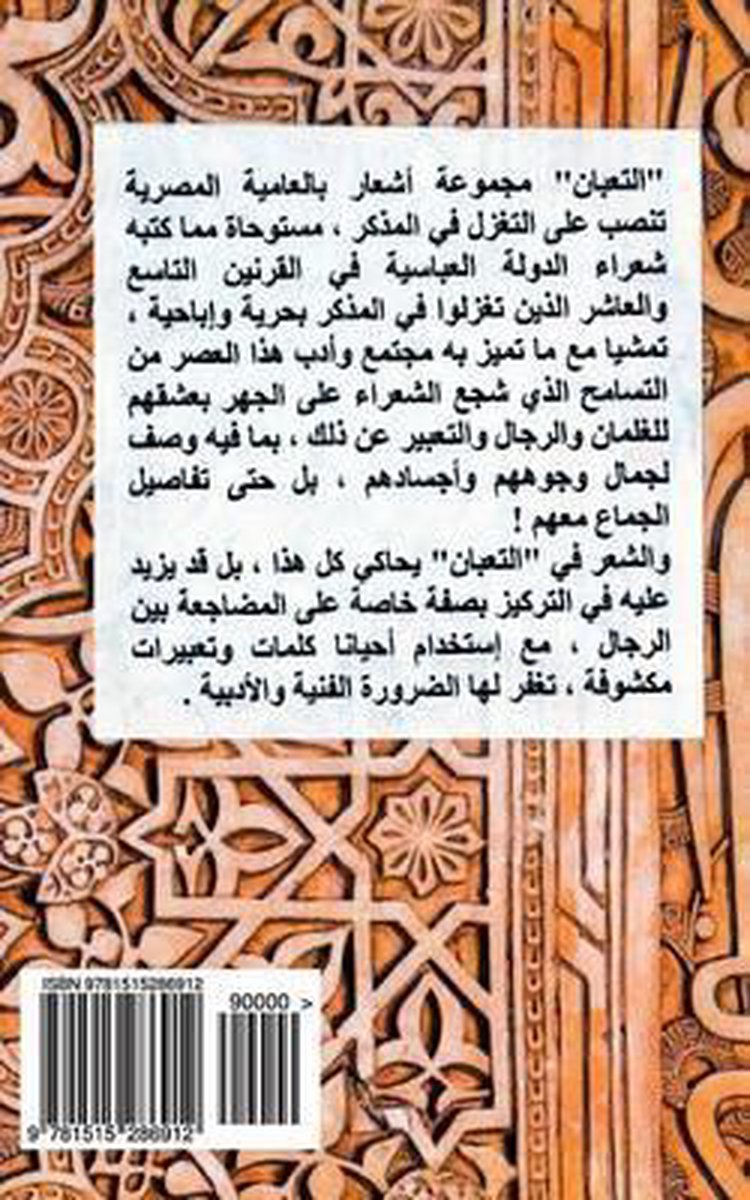 "التعبان" مجموعة أشعار بالعامية المصرية
تنصب على التغزل في المذكر ، مستوحاة مما كتبه
شعراء الدولة العباسية في القرنين التاسع
والعاشر الذين تغزلوا في المذكر بحرية وإباحية ،
تمشيا مع ما تميز به مجتمع وأدب هذا العصر من
التسامح الذي شجع الشعراء على الجهر بعشقهم
للغلمان والرجال والتعبير عن ذلك ، بما فيه وصف
لجمال وجوههم وأجسادهم ، بل حتى تفاصيل
الجماع معهم !
والشعر في "التعبان" يحاكي كل هذا ، بل قد يزيد
عليه في التركيز بصفة خاصة على المضاجعة بين
الرجال ، مع إستخدام أحيانا كلمات وتعبيرات
مكشوفة ، تغفر لها الضرورة الفنية والأدبية .
ISBN 9781515286912
90000 >
9 781515 286912